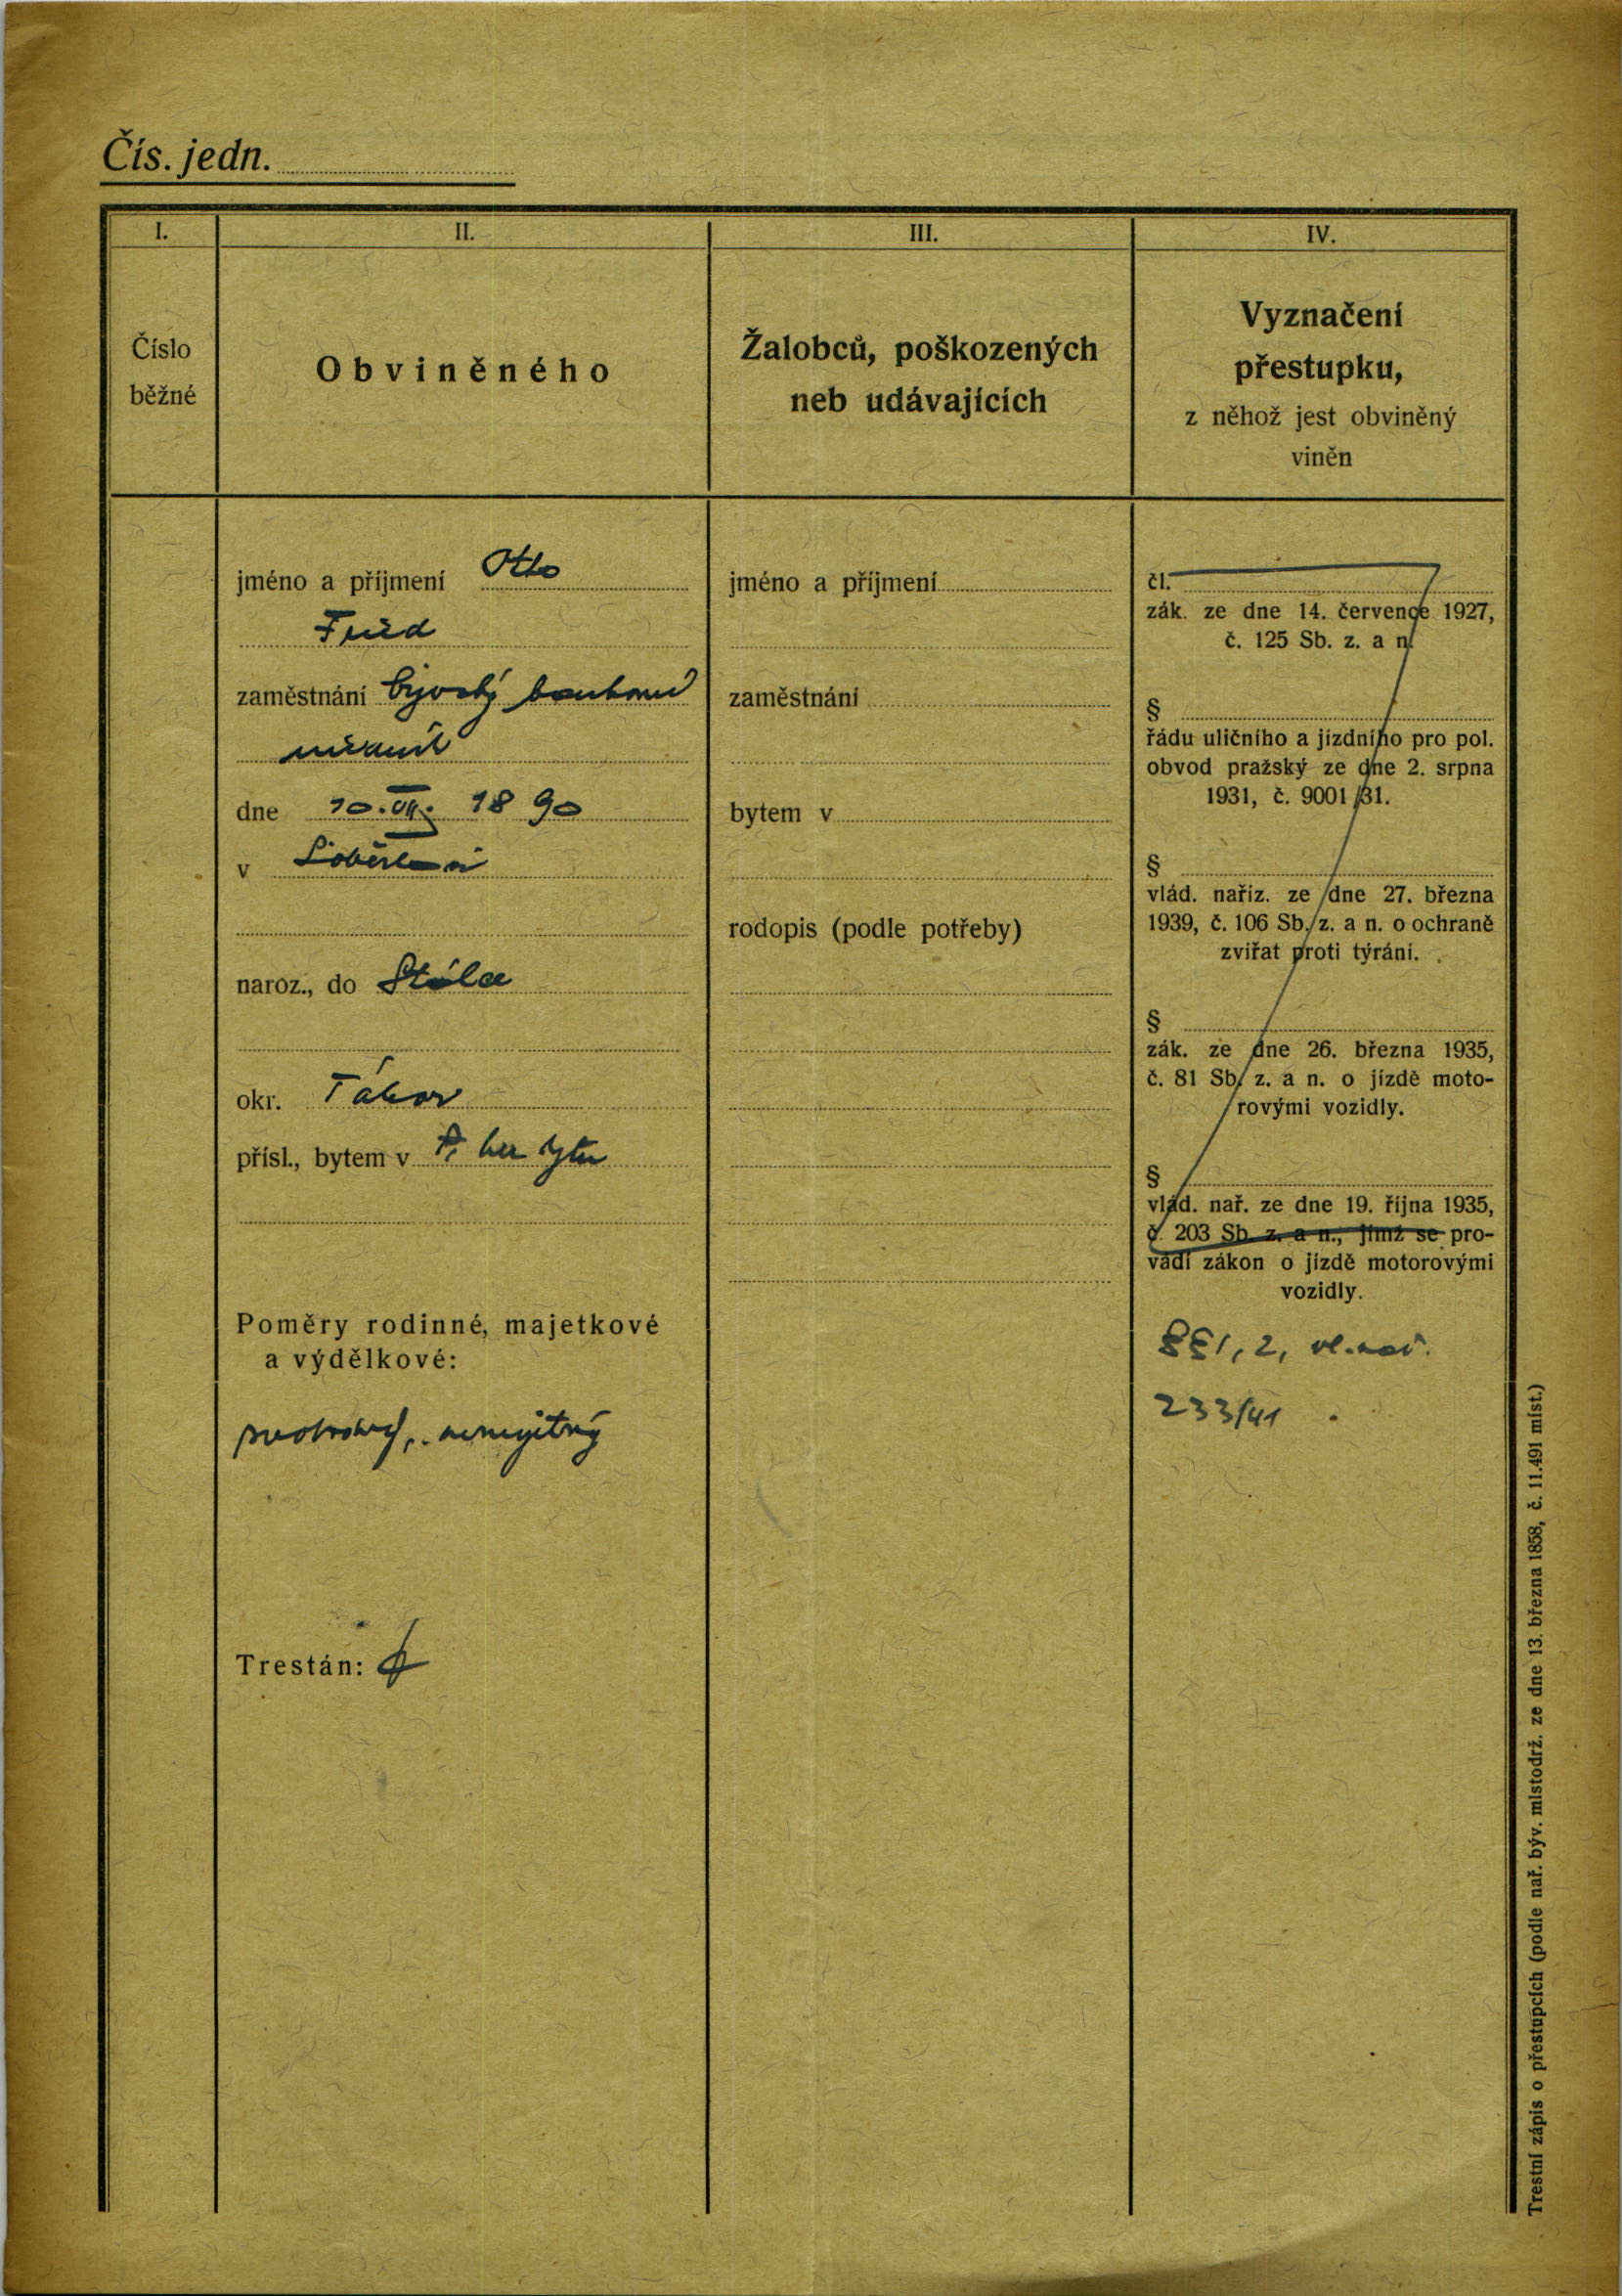 Čís. jedn.
I.
II.
III.
IV.
Číslo
běžné
Obviněného
Žalobců, poškozených
neb udávajících
Vyznačení
přestupku,
z něhož jest obviněný
viněn
jméno a příjmení Otto
zaměstnání bývalý
dne 10. VII. 1890
v
naroz., do
okr. Tábor
přísl., bytem v
Poměry rodinné, majetkové
a výdělkové:
nemajetný
Trestán:
jméno a příjmení
zaměstnání
bytem v
rodopis (podle potřeby)
čl.
zák. ze dne 14. července 1927,
č. 125 Sb. z. a n.
§
řádu uličního a jízdního pro pol.
obvod pražský ze dne 2. srpna
1931, č. 9001/31.
§
vlád. naříz. ze dne 27. března
1939, č. 106 Sb. z. a n. o ochraně
zvířat proti týrání.
§
zák. ze dne 26. března 1935,
č. 81 Sb. z. a n. o jízdě moto-
rovými vozidly.
§
vlád. nař. ze dne 19. října 1935,
č. 203 Sb. z. a n., jímž se pro-
vádí zákon o jízdě motorovými
vozidly.
§§ 1, 2, vl. nař.
233/41
Trestní zápis o přestupcích (podle nař. býv. místodrž. ze dne 13. března 1858, č. 11.491 míst.)